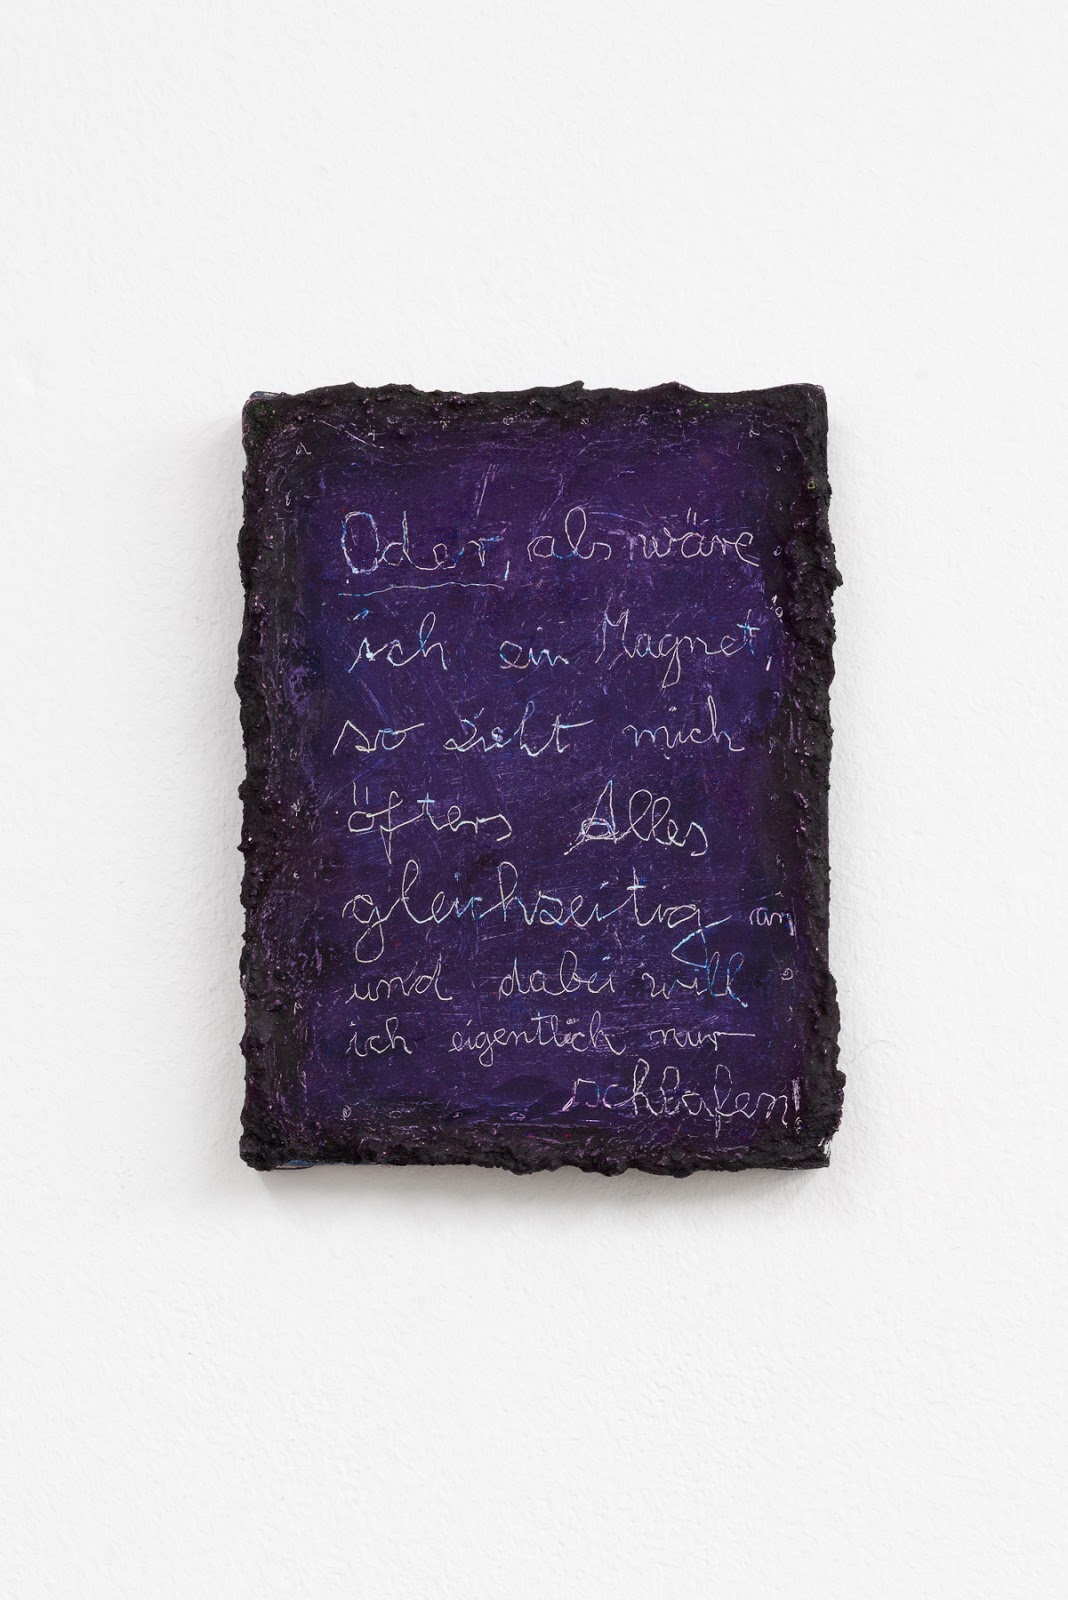 Oder, als wäre
ich ein Magnet,
so zieht mich
öfters Alles
gleichzeitig an
und dabei will
ich eigentlich nur
schlafen!